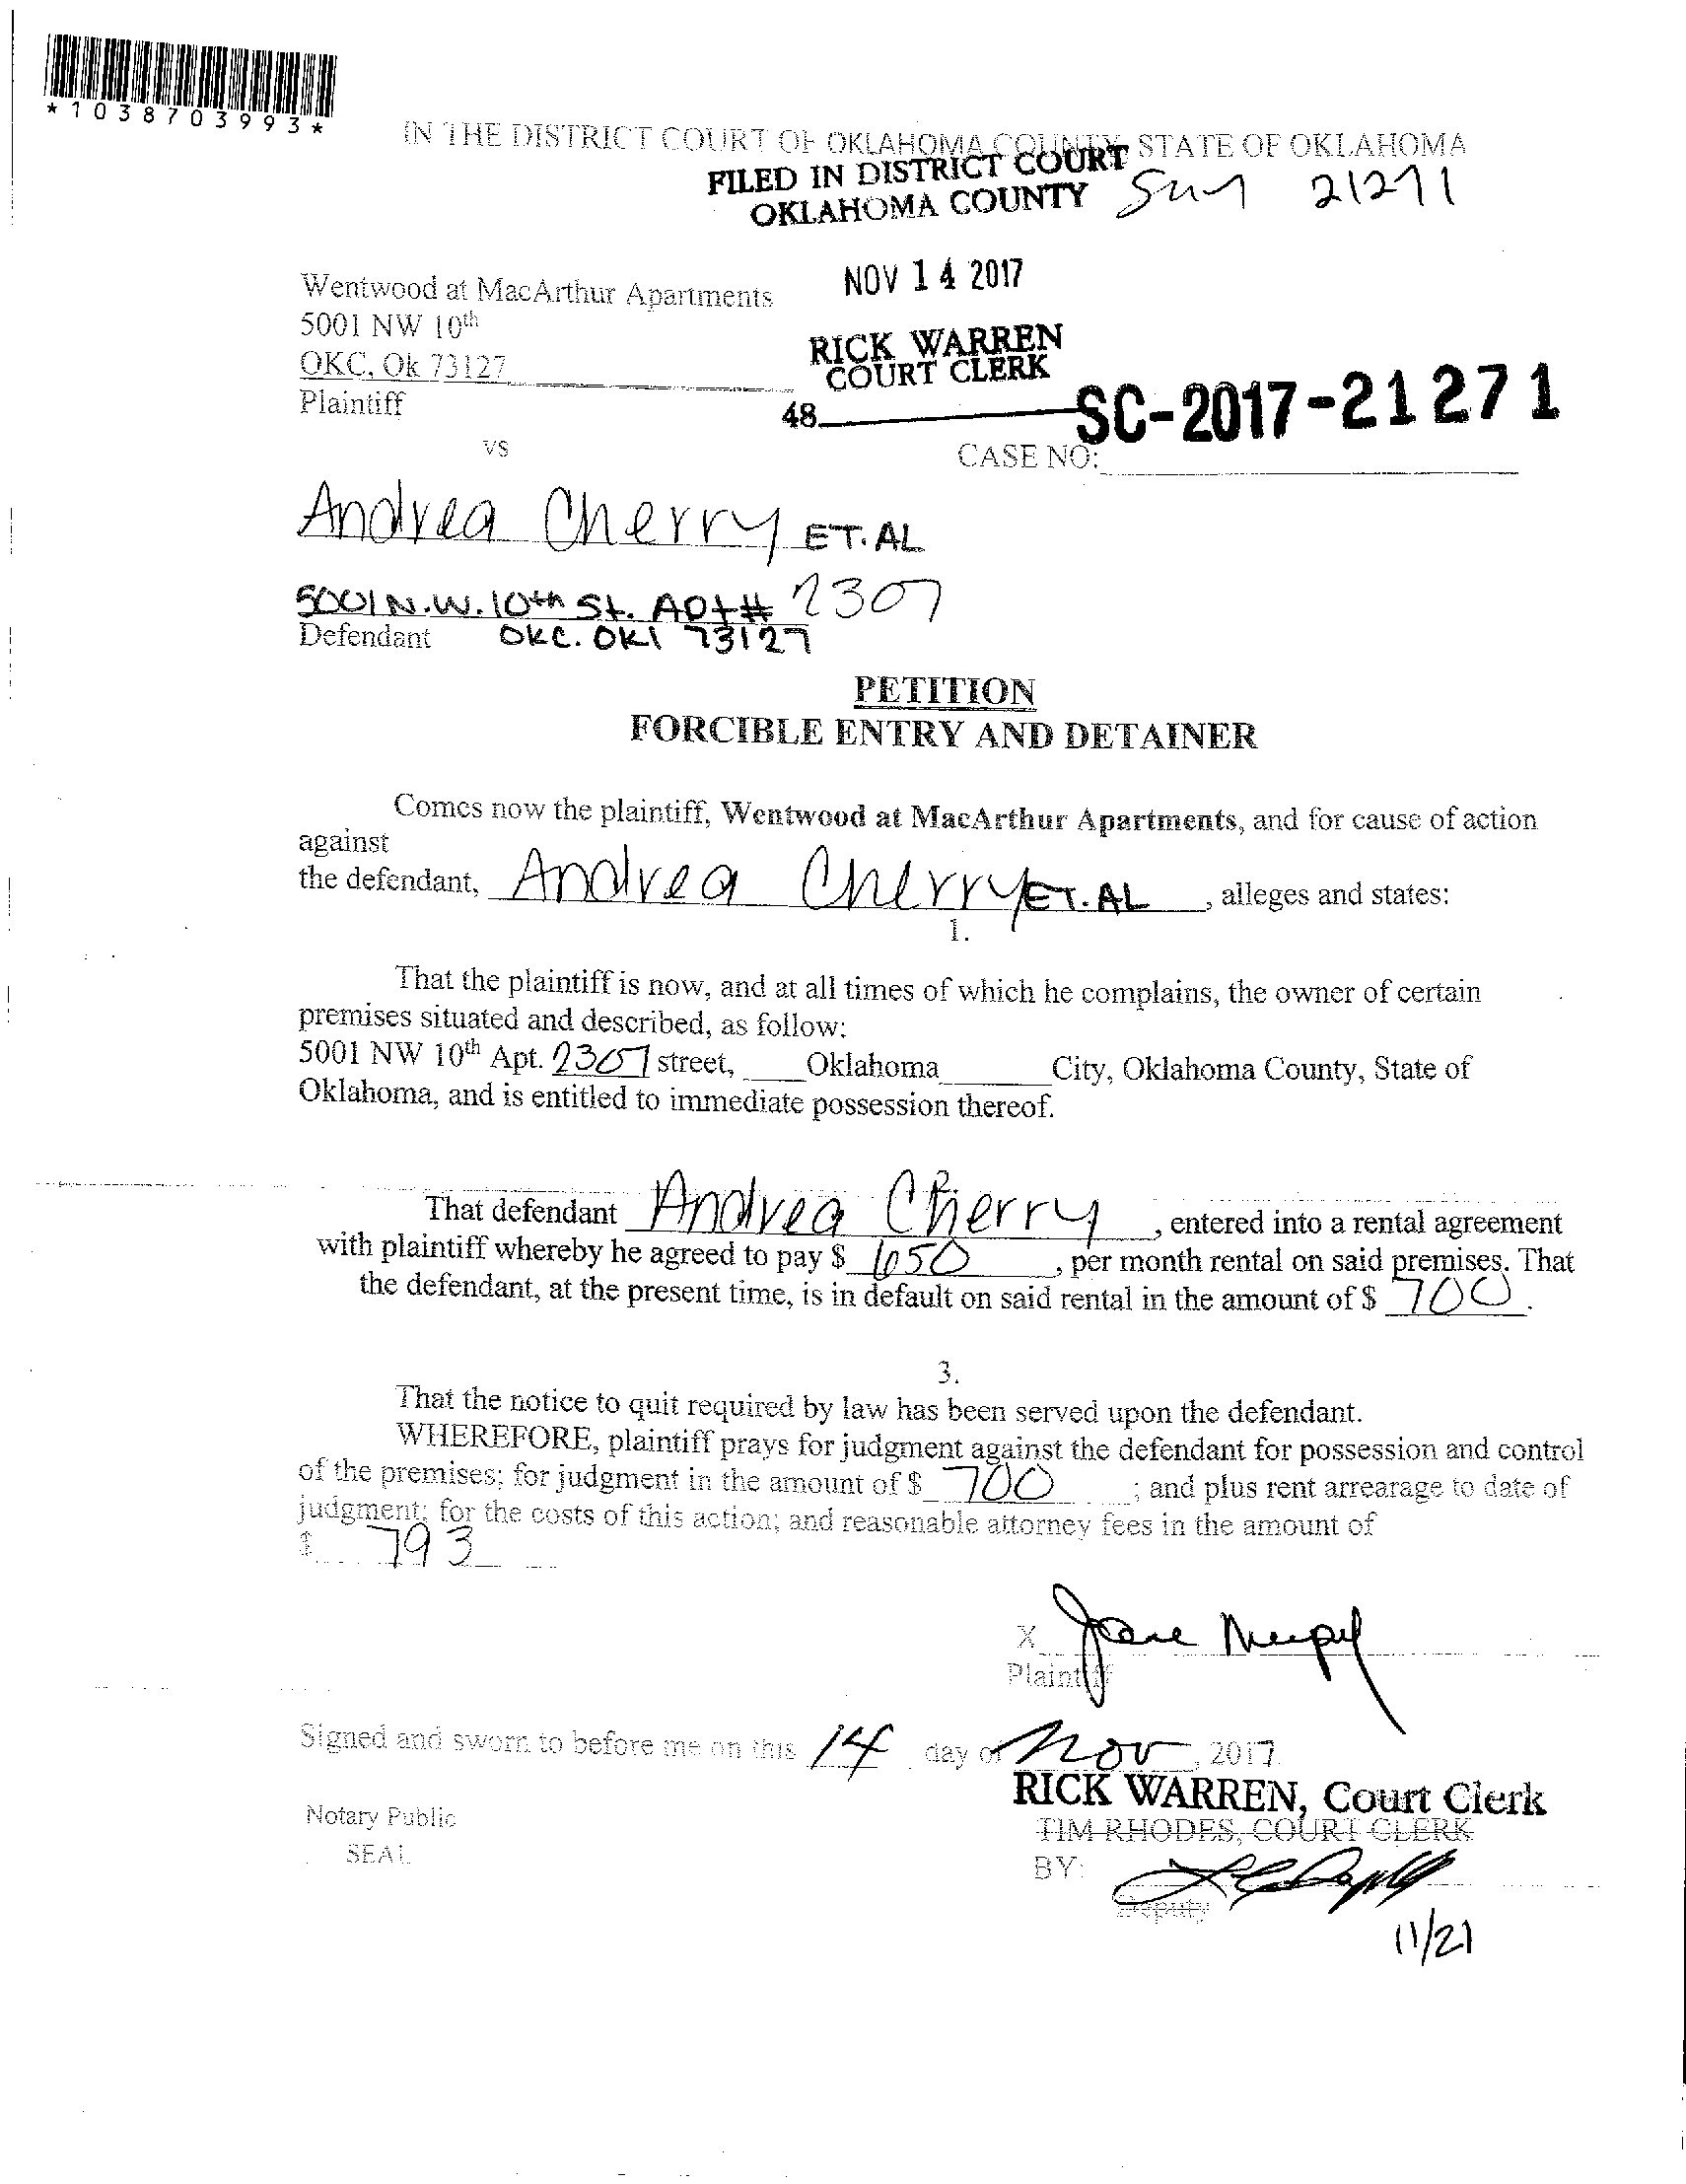 *1038703993*
IN THE DISTRICT COURT OF OKLAHOMA COUNTY, STATE OF OKLAHOMA
FILED IN DISTRICT COURT
OKLAHOMA COUNTY
21271
NOV 14 2017
Wentwood at MacArthur Apartments
5001 NW 10th
RICK WARREN
OKC, Ok 73127
COURT CLERK
Plaintiff
48
SC-2017-21271
vs
CASE NO:
Andrea Cherry ET. AL
5001 N.W. 10th St. Apt# 2307
Defendant OKC. Okl 73127
PETITION
FORCIBLE ENTRY AND DETAINER
Comes now the plaintiff, Wentwood at MacArthur Apartments, and for cause of action
against
the defendant, Andrea Cherry ET. AL , alleges and states:
1.
That the plaintiff is now, and at all times of which he complains, the owner of certain
premises situated and described, as follow:
5001 NW 10th Apt. 2307 street, Oklahoma City, Oklahoma County, State of
Oklahoma, and is entitled to immediate possession thereof.
That defendant Andrea Cherry , entered into a rental agreement
with plaintiff whereby he agreed to pay $ 650 , per month rental on said premises. That
the defendant, at the present time, is in default on said rental in the amount of $ 700.
3.
That the notice to quit required by law has been served upon the defendant.
WHEREFORE, plaintiff prays for judgment against the defendant for possession and control
of the premises; for judgment in the amount of $ 700 ; and plus rent arrearage to date of
judgment; for the costs of this action; and reasonable attorney fees in the amount of
$ 793
X
Plaintiff
Signed and sworn to before me on this 14 day of Nov, 2017.
RICK WARREN, Court Clerk
Notary Public
TIM RHODES, COURT CLERK
SEAL
BY:
Deputy
11/21